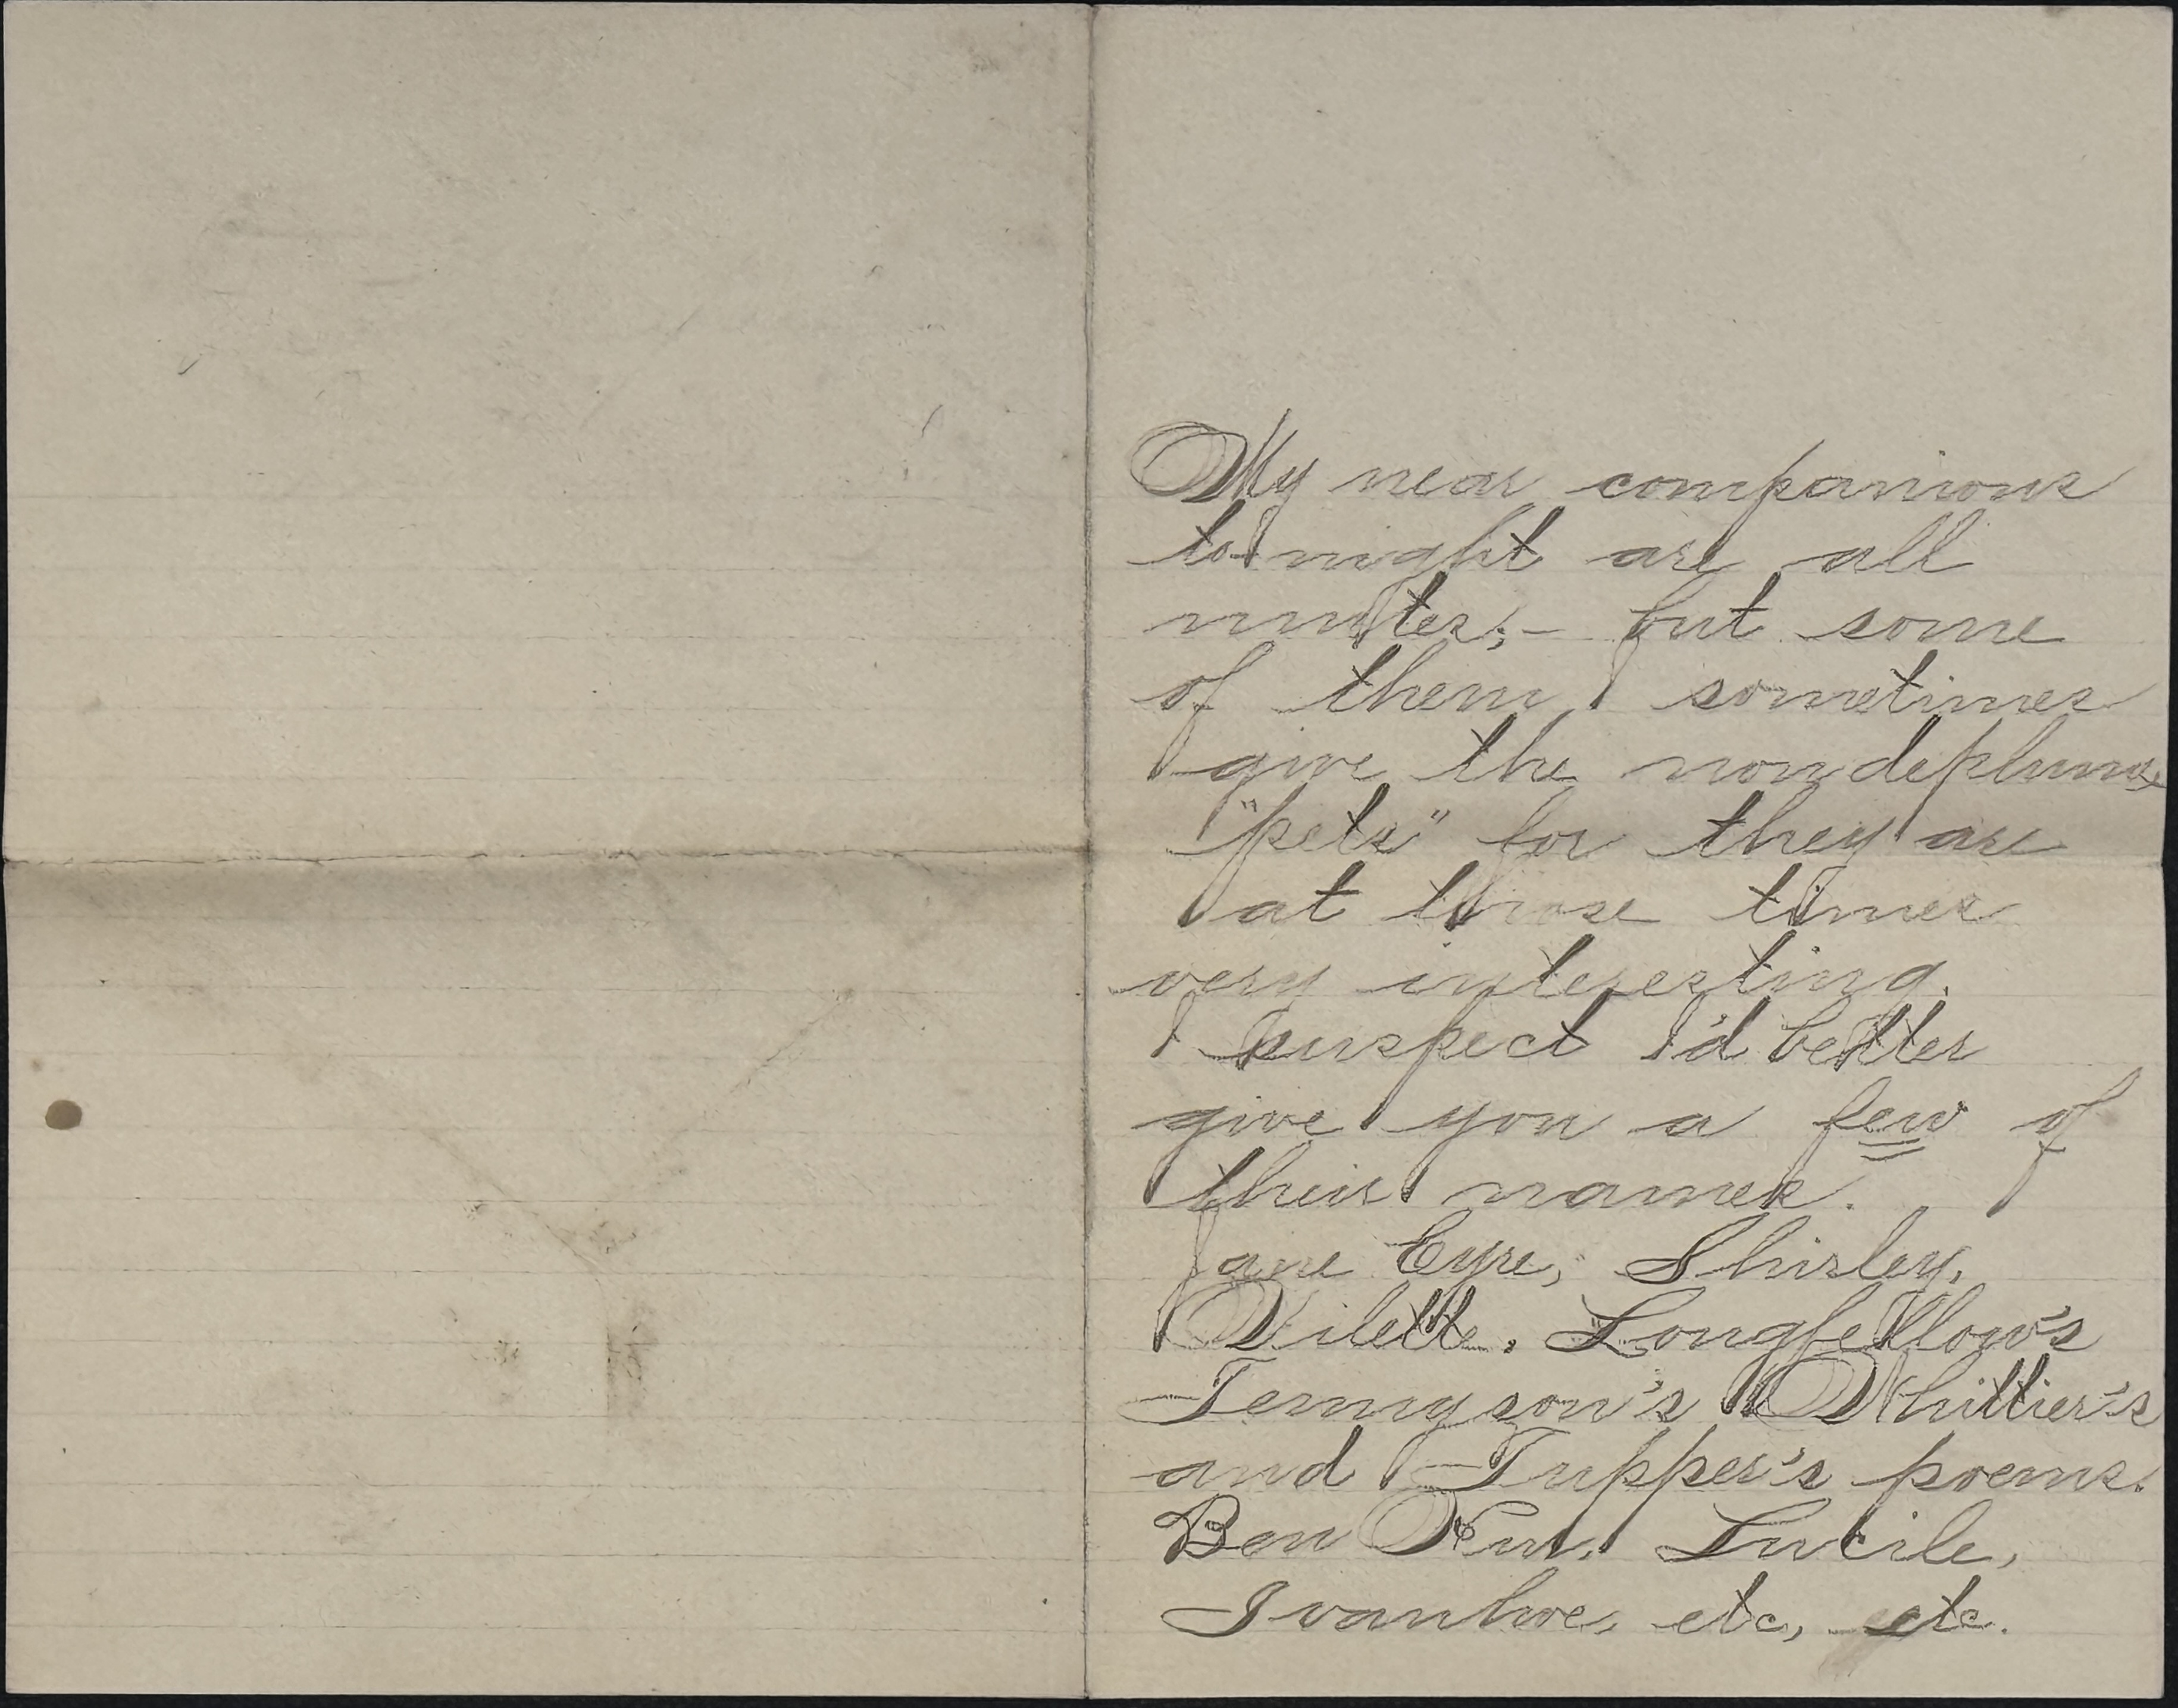 My near companions
to-night are all
mutes;- but some
of them sometimes
give the nom deplume
"pets" for they are
at those times
very interesting.
I suspect I'd better
give you a few of
their names.
Jane Eyre, Shirley,
Vilette, Longfellow's
Tennyson's Whittier's
and Tupper's poems.
Ben Hur, Lucile,
Ivanhoe, etc, etc.